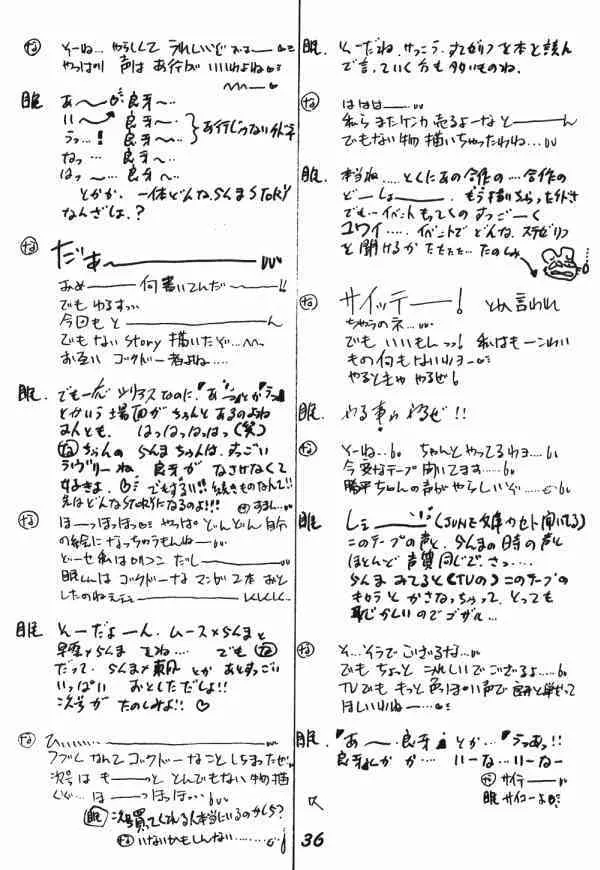 な そーね… やらしくて うれしいけど
やっぱり 声は あ行が いいわよね
眠 あ〜 良牙〜‥
い〜 良牙〜‥
うっ…! 良牙〜‥
なっ… 良牙〜
はっ〜… 良牙〜‥
とかか、一体どんならんま STORY
なんざしょ.?
な だぁー
あぬ── 何書いてんだ──!!
でも ゆるすっ‥
今回も と────ん
でもない story 描いたぞ…
お互い ゴクドー者よね‥‥
眠. でも一応 シリアスなのに、「あっ」とか「うっ」
とかいう 場面が ちゃんと あるのよね
なんとも. はっはっはっはっ(笑)
な ちゃんの らんまちゃんは、すっごい
ラヴリーね 良牙が なさけなくて
好きよ ♡
次はどんなSTORYになるのよ!!!
な ほーっほっほっ やっぱ どんどん 自分
の絵に なっちゃうもんねー
どーせ 私は ロリコン だし──
眠くんは ゴクドーな マンガ 2本 おと
したのねェ
眠 そーだよーん. ムース×らんまと
早雲×らんま でね… でも な
だって. らんま×東風 とか あと すっごい
いっぱい おとしただしょ!!
次号が たのしみよ!! ♡
な ひぃ‥‥
ゴクドーなこと しちまったぜ
次号は も──っと とんでもない物 描
くぞ… ほ──っほっほ…
眠 次号買ってくれる人本当にいるのかしら?
な いないかもしんない‥‥‥
眠. そーだね. けっこう すてゼリフ を本と読ん
で言っていく方も 多いものね.
な ははは──‥
私ら またケンカ 売るよーな と────ん
でもない 物 描いちゃったわね…
眠. 本当ね‥‥ とくに あの合作の…合作の
どーしょ───. もう描いちゃった
でも…イベント もってくの すっごーく
コワイ‥‥. イベントで どんな. ステゼリフ
を 聞けるか たのしみ
な サイッテー──! とか 言われ
ちゃうのネ…
でも いいもーんっ! 私はも一
もの何もないわョー
やるときゃ やるぜ!
眠. やる事ぁ やるぜ!!
な そーね‥ ちゃんと やってるわョ‥‥
今 変なテープ 聞いてます‥‥
勝平ちゃんの声が やらしいぞ……
眠 しぇ──── (JUNE文庫のカセット聞いてる)
このテープの声と. らんまの日時の声と
ほとんど 声質 同じで. さっ…
らんま みてると(TVの) このテープの
キャラと かさなっちゃって、とっても
恥じかしいのでゴザル…
な そ…そうで ござるな…
でも ちょっと うれしいで ござるよ‥‥
TVでも もっと 色っぽい声で
ほしいわね──…
眠. 「あ〜・良牙」とか…「うっあっ!!
良牙くんか か‥‥ いーな…いーなー
な サイテー──
眠 サイコー
36